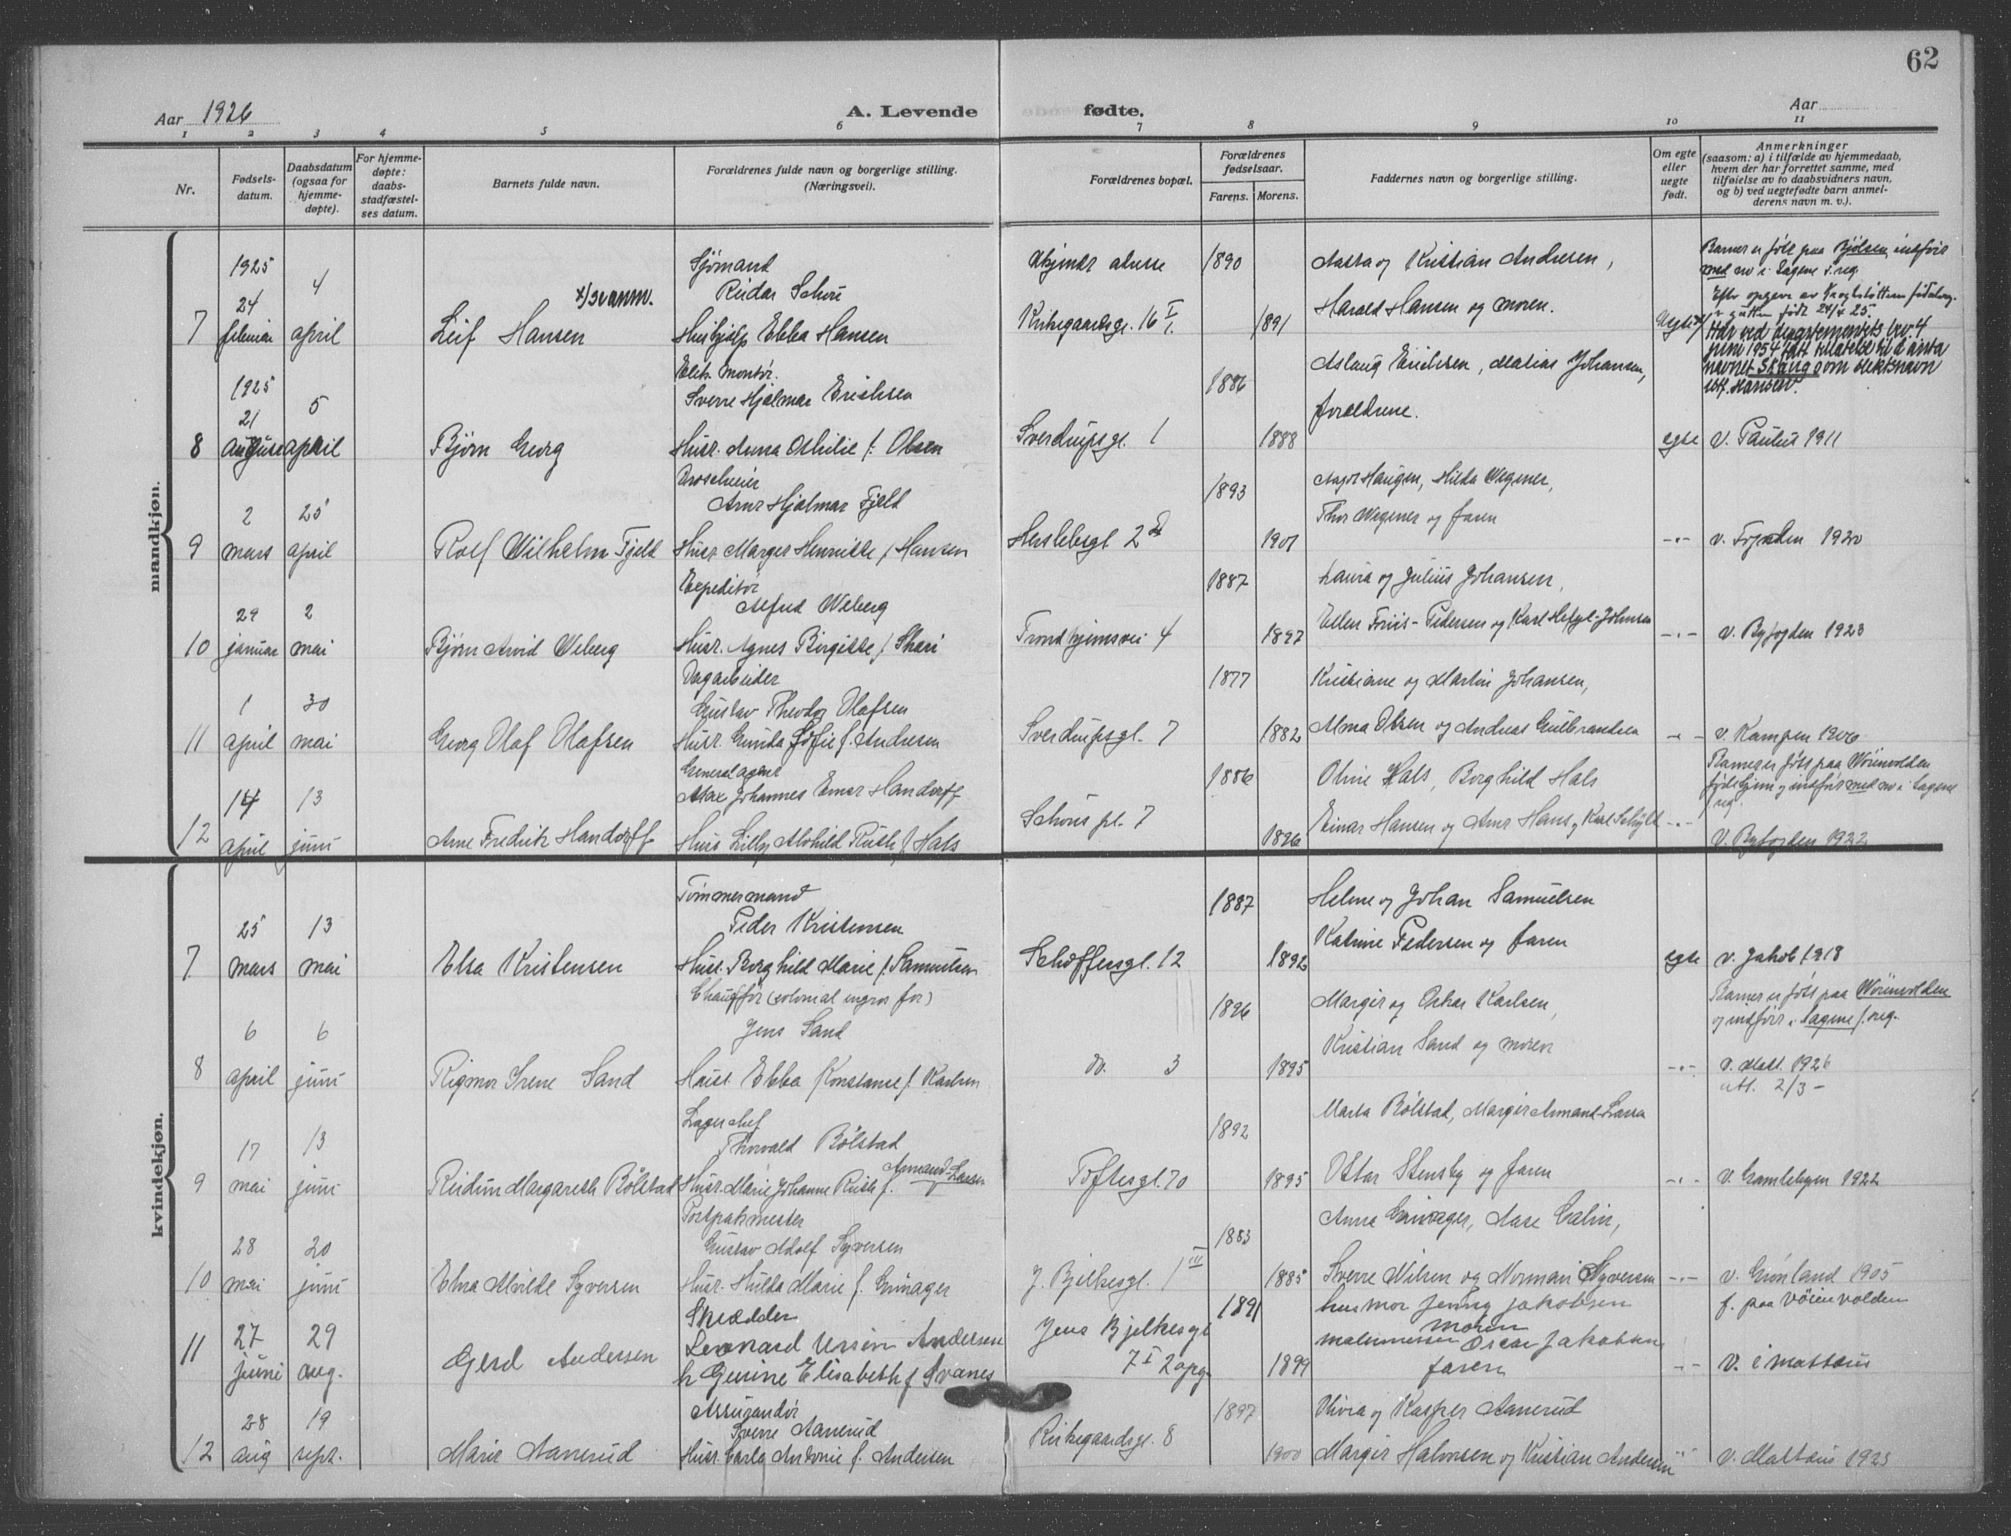 62
Aar 1926
A. Levende fødte.
Aar
1 2 3 4 5 6 7 8 9 10 11
Nr.
Fødsels-
datum.
Daabsdatum
(ogsaa for
hjemme-
døpte).
For hjemme-
døpte:
daabs-
stadfæstel-
ses datum.
Barnets fulde navn.
Forældrenes fulde navn og borgerlige stilling.
(Næringsvei).
Forældrenes bopæl.
Forældrenes
fødselsaar.
Farens. Morens.
Faddernes navn og borgerlige stilling.
Om egte
eller
uegte
født.
Anmerkninger
(saasom: a) i tilfælde av hjemmedaab,
hvem der har forrettet samme, med
tilføielse av to daabsvidners navn,
og b) ved uegtefødte barn anmel-
derens navn m. v.).
mandkjøn.
1925
24
4
7 februar april
Leif Hansen
x/se anm.
Sjømand
Reidar Schou
Hushjelp Ebba Hansen
Kirkegaardsgt. 16 I
1890
1891
Aasta og Kristian Andresen,
Harald Hansen og moren.
Uegte
Barnet er født paa Bjølsen, indført
med nr i Sagene f. reg.
Har ved departementets brev 4
juni 1954 fått tillatelse til å anta
navnet Skaug som slektsnavn
istf. Hansen.
1925
21
5
8 august april
Bjørn Georg
Elektr. montør.
Sverre Hjalmar Erichsen
Husr. Anna Othilie f. Olsen
Sverdrupsgt. 1
1886
1888
Aslaug Erichsen, Mathias Johansen,
forældrene.
egte
v. Paulus 1911
2
25
9 mars april
Rolf Wilhelm Fjeld
Droscheeier
Arne Hjalmar Fjeld
Husr. Margit Henriette f. Hansen
Herslebsgt 2 d
1893
1901
Aagot Haugen, Hilda Wegener,
Thor Wegener og faren
-"-
v. Fogden 1920
29
2
10 januar mai
Bjørn Arvid Weberg
Expeditør
Alfred Weberg
Husr. Agnes Birgitte f. Skari
Trondhjemsvei 4
1887
1897
Laura og Julius Johansen,
Ellen Friis-Pedersen og Karl Johnsen
-"-
v. Byfogden 1923
1
30
11 april mai
Georg Olaf Olafsen
Dagarbeider
Gustav Theodor Olafsen
Husr. Gunda Sofie f. Andresen
Sverdrupsgt. 7
1877
1882
Kristiane og Martin Johansen,
Alma Olsen og Andreas Gulbrandsen
-"-
v. Kampen 1906
14
13
12 april juni
Arne Fredrik Handorff
Generalagent
Max Johannes Ernst Handorff
Husr Lilly Alvhild Ruth f. Hals
Schous pl. 7
1886
1896
Oline Hals, Borghild Hals
Einar Hansen og Arne Hans, Karl Schyldt
-"-
Barnet er født paa Vøienvolden
fødehjem og indført med nr i Sagene
reg
v. Byfogden 1922
kvindekjøn.
25
13
7 mars mai
Elsa Kristensen
Tømmermand
Peder Kristensen
Husr. Borghild Marie f. Samuelsen
Schæffersgt. 12
1887
1892
Helene og Johan Samuelsen
Katrine Pedersen og faren
egte
v. Jakob 1918
6
6
8 april juni
Rigmor Irene Sand
Chauffør (colonial engros for)
Jens Sand
Husr. Ebba Konstanse f. Karlsen
do. 3
1896
1895
Margit og Oskar Karlsen,
Kristian Sand og moren
-"-
Barnet er født paa Vøienvolden
og indført i Sagene f. reg.
v. Matt. 1926
att. 2/3 –
17
13
9 mai juni
Reidun Margareth Bølstad
Lagerchef
Thorvald Bølstad
Husr. Marie Johanne Ruth f. Armand-Larsen
Toftesgt. 70
1892
1895
Marta Bølstad, Margit Armand-Larsen
Ottar Stensby og faren
-"-
v. Gamlebyen 1922
28
20
10 mai juni
Elna Alvilde Syversen
Postpakmester
Gustav Adolf Syversen
Husr. Hulda Marie f. Grinager
J. Bjelkesgt. 1 III
1883
1885
Anna Grinager, Aase Calin,
Sverre Nilsen og Norman Syversen
-"-
v. Grønland 1905
27
29
11 juni aug.
Gerd Andersen
Skrædder
Leonard Ursin Andersen
h Gurine Elisabeth f Svanes
Jens Bjelkesgt
7 I 2 opg
1891
1899
husmor Jenny Jakobsen
moren
malermester Oscar Jakobsen
faren
-"-
f. paa Vøienvolden
v. i Mattæus
28
19
12 aug sept.
Marie Aanerud
Assurandør
Sverre Aanerud
Husr. Carla Antonie f. Andersen
Kirkegaardsgt. 8
1897
1900
Olivia og Kasper Aanerud
Margit Halvorsen og Kristian Andersen
-"-
v. Mattæus 1925